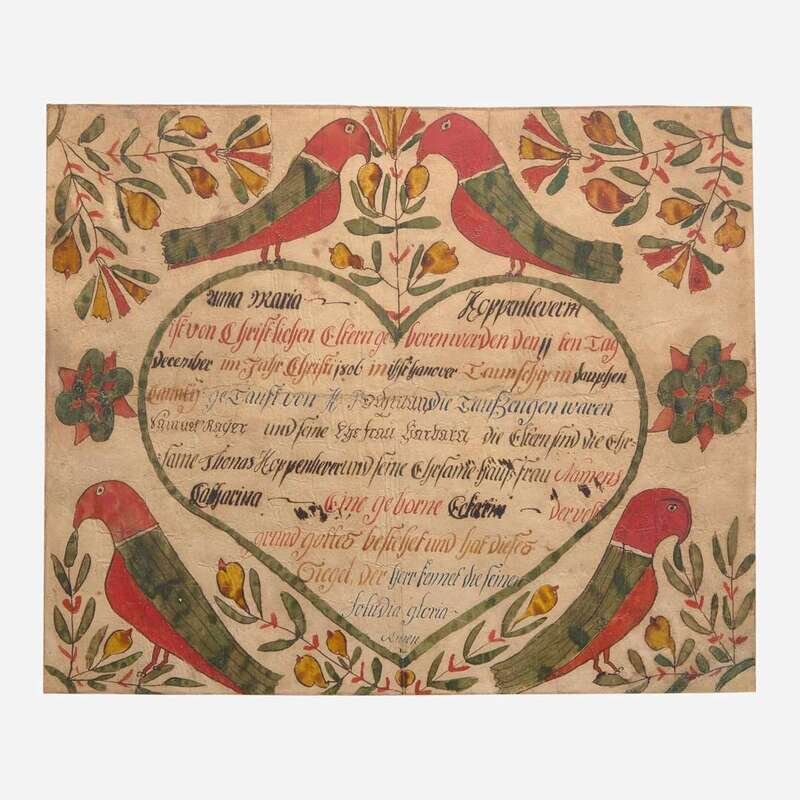 Anna Maria Koppenheverin
ist von Christlichen Eltern geboren worden den 11 ten Tag
December im Jahr Christi 1806 in West hanover Taunschip in Dauphen
Caunty getauft von H. die Taufzeugen waren
Samuel und seine Ehe frau Barbara die Eltern sind die Ehr-
same Thomas Koppenhever und seine Ehrsame Hauss frau Namens
Catharina Eine geborne Eckartin der veste
grund gottes bestehet und hat dieses
Siegel, der Herr kennet die seinen
soludia gloria
Amen